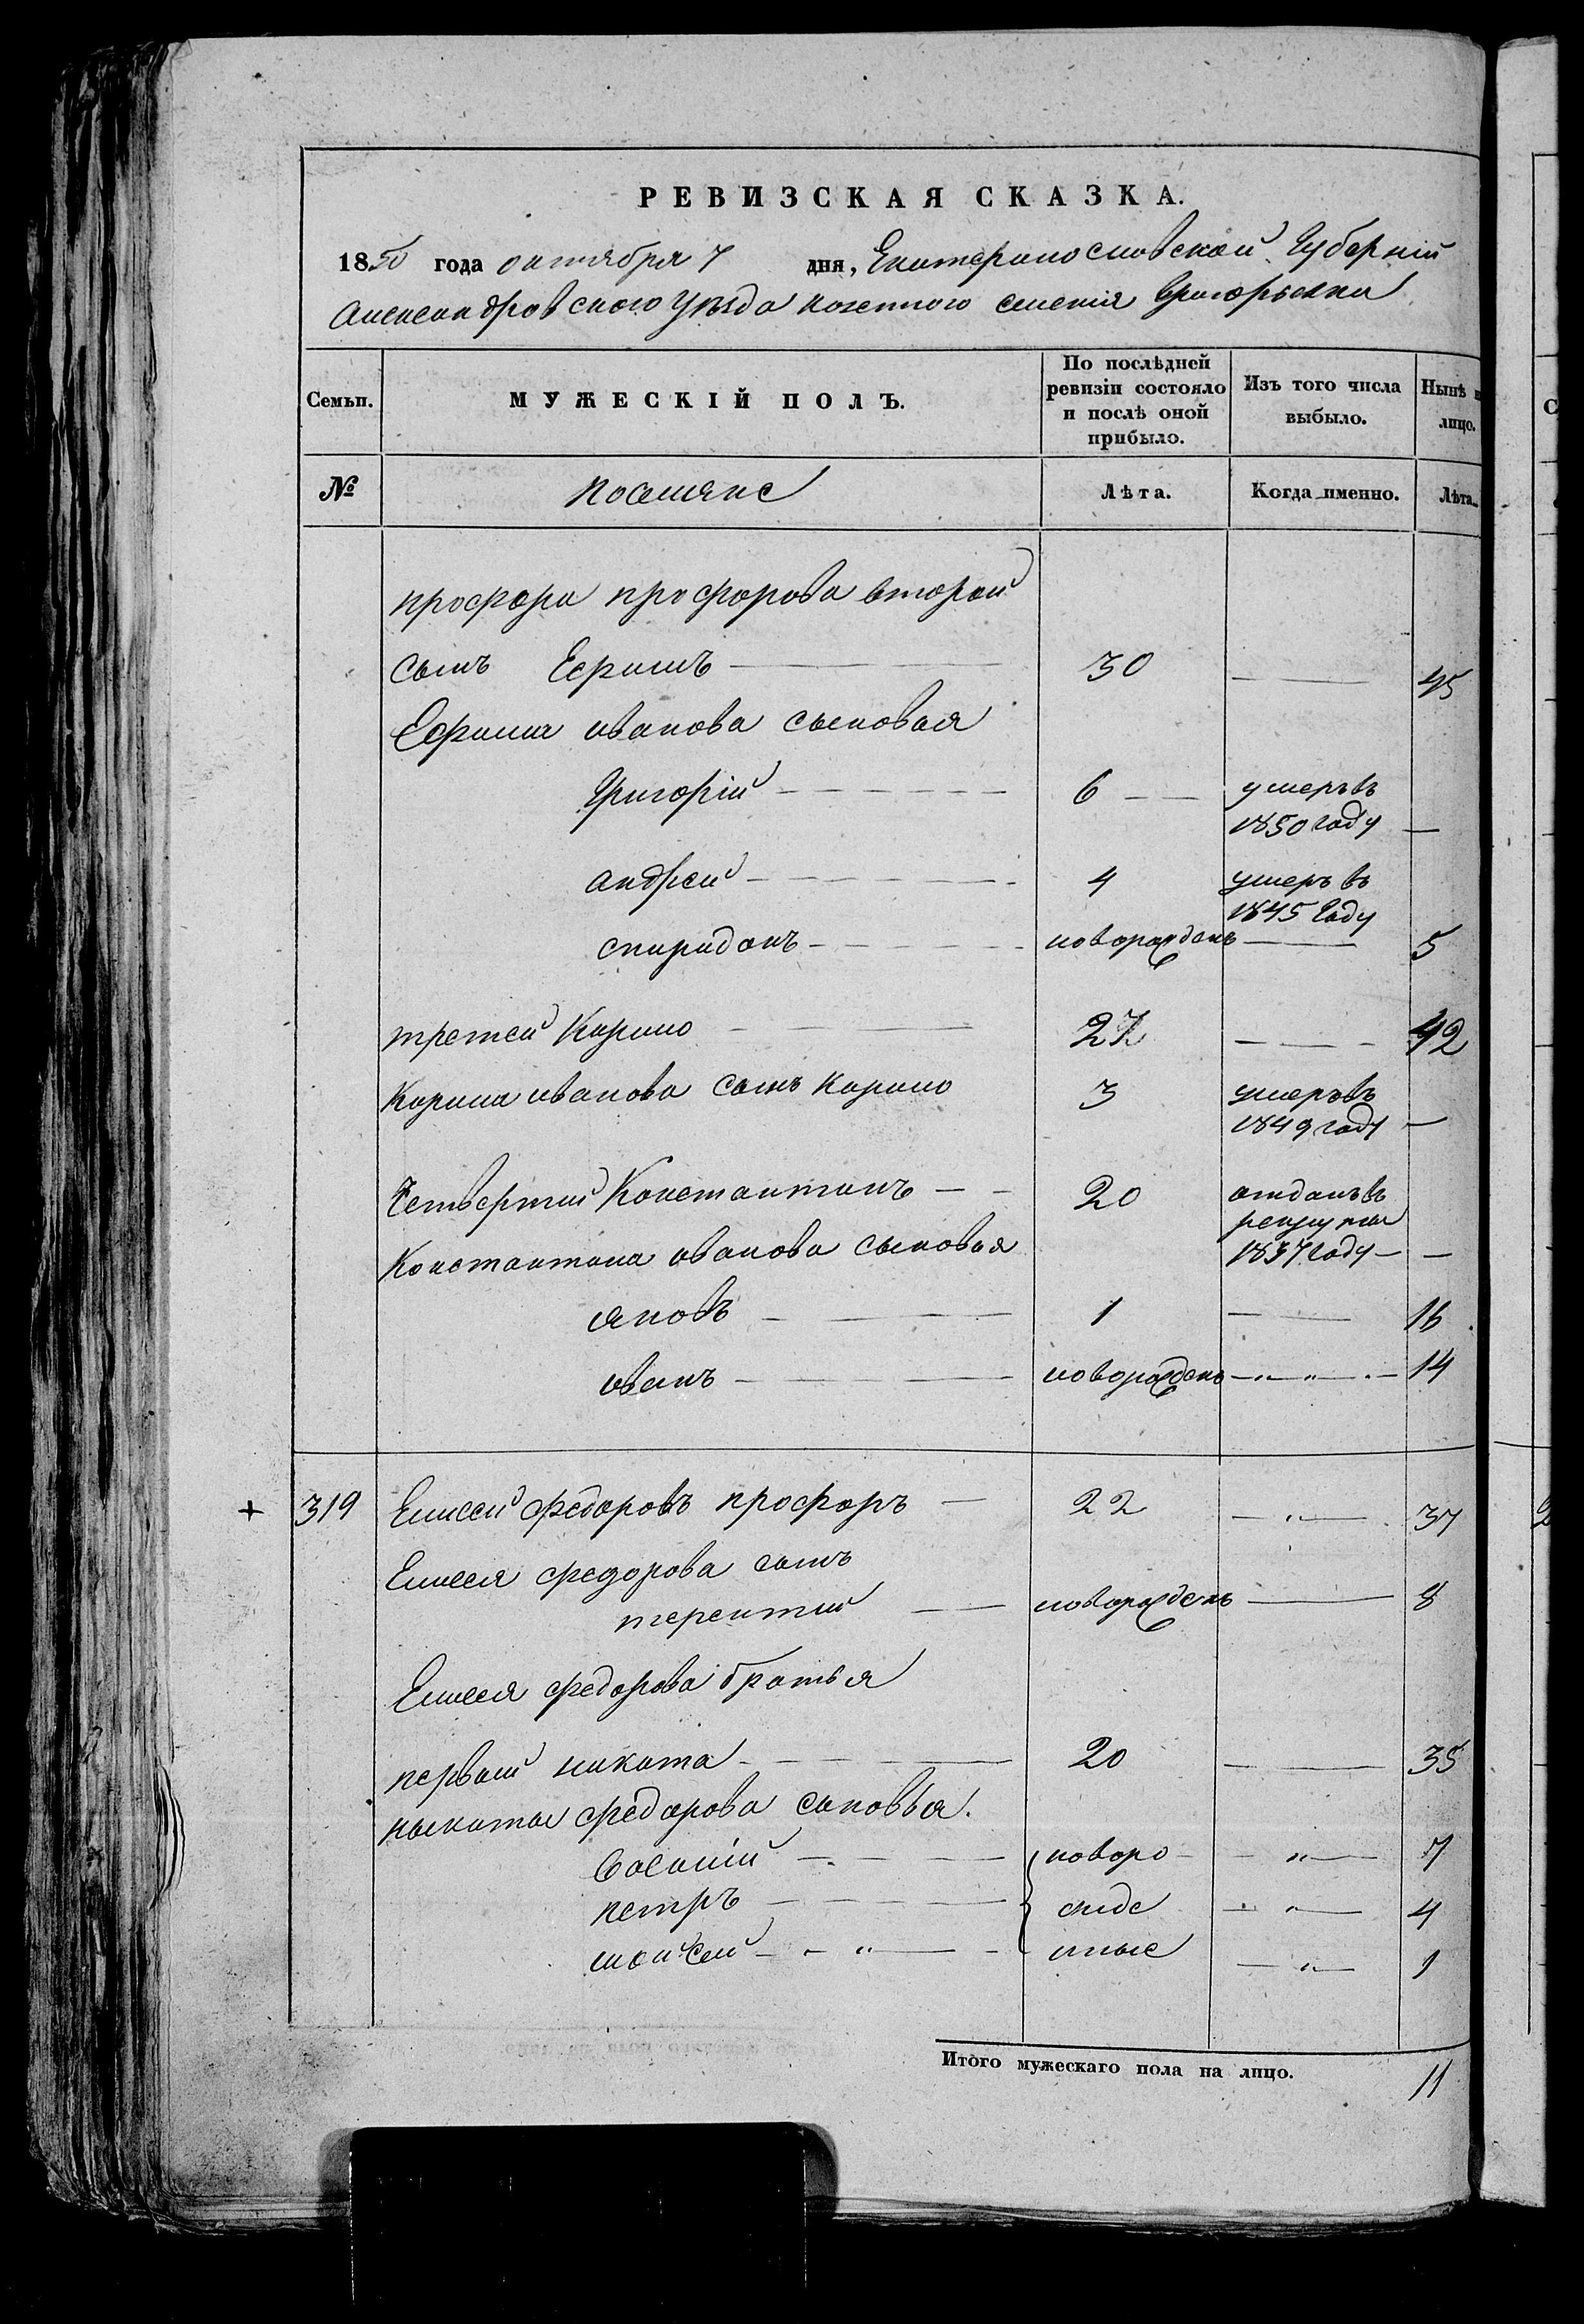 РЕВИЗСКАЯ СКАЗКА.
1850 года октября 7 дня, Екатеринославской Губерніи
Александровского Уѣзда казенного селенія Григорьевки
Семьи. МУЖЕСКІЙ ПОЛЪ. По послѣдней ревизіи состояло и послѣ оной прибыло. Изъ того числа выбыло. Нынѣ н лицо.
№ поселяне Лѣта. Когда именно. Лѣта.
прохора прохорова второй
сынъ Ефимъ 30 45
Ефима иванова сыновья
Григорій 6 умеръ въ 1850 году
андрей 4 умеръ въ 1845 Году
спиридонъ новорожденъ 5
третей Карпо 27 42
Карпа иванова сынъ Карпо 3 умеръ въ 1849 году
Четвертый Константинъ 20 отданъ въ рекруты 1837 Году
Константина иванова сыновья
яковъ 1 16
иванъ новорожденъ 14
+ 319 Елисей федоровъ прохоръ 22 37
Елисея федорова сынъ
терентий новорожденъ 8
Елисея федорова братья
первый никита 20 35
никиты федорова сыновья.
Василій новоро 7
петръ жде 4
мойсей нные 1
Итого мужескаго пола на лицо. 11